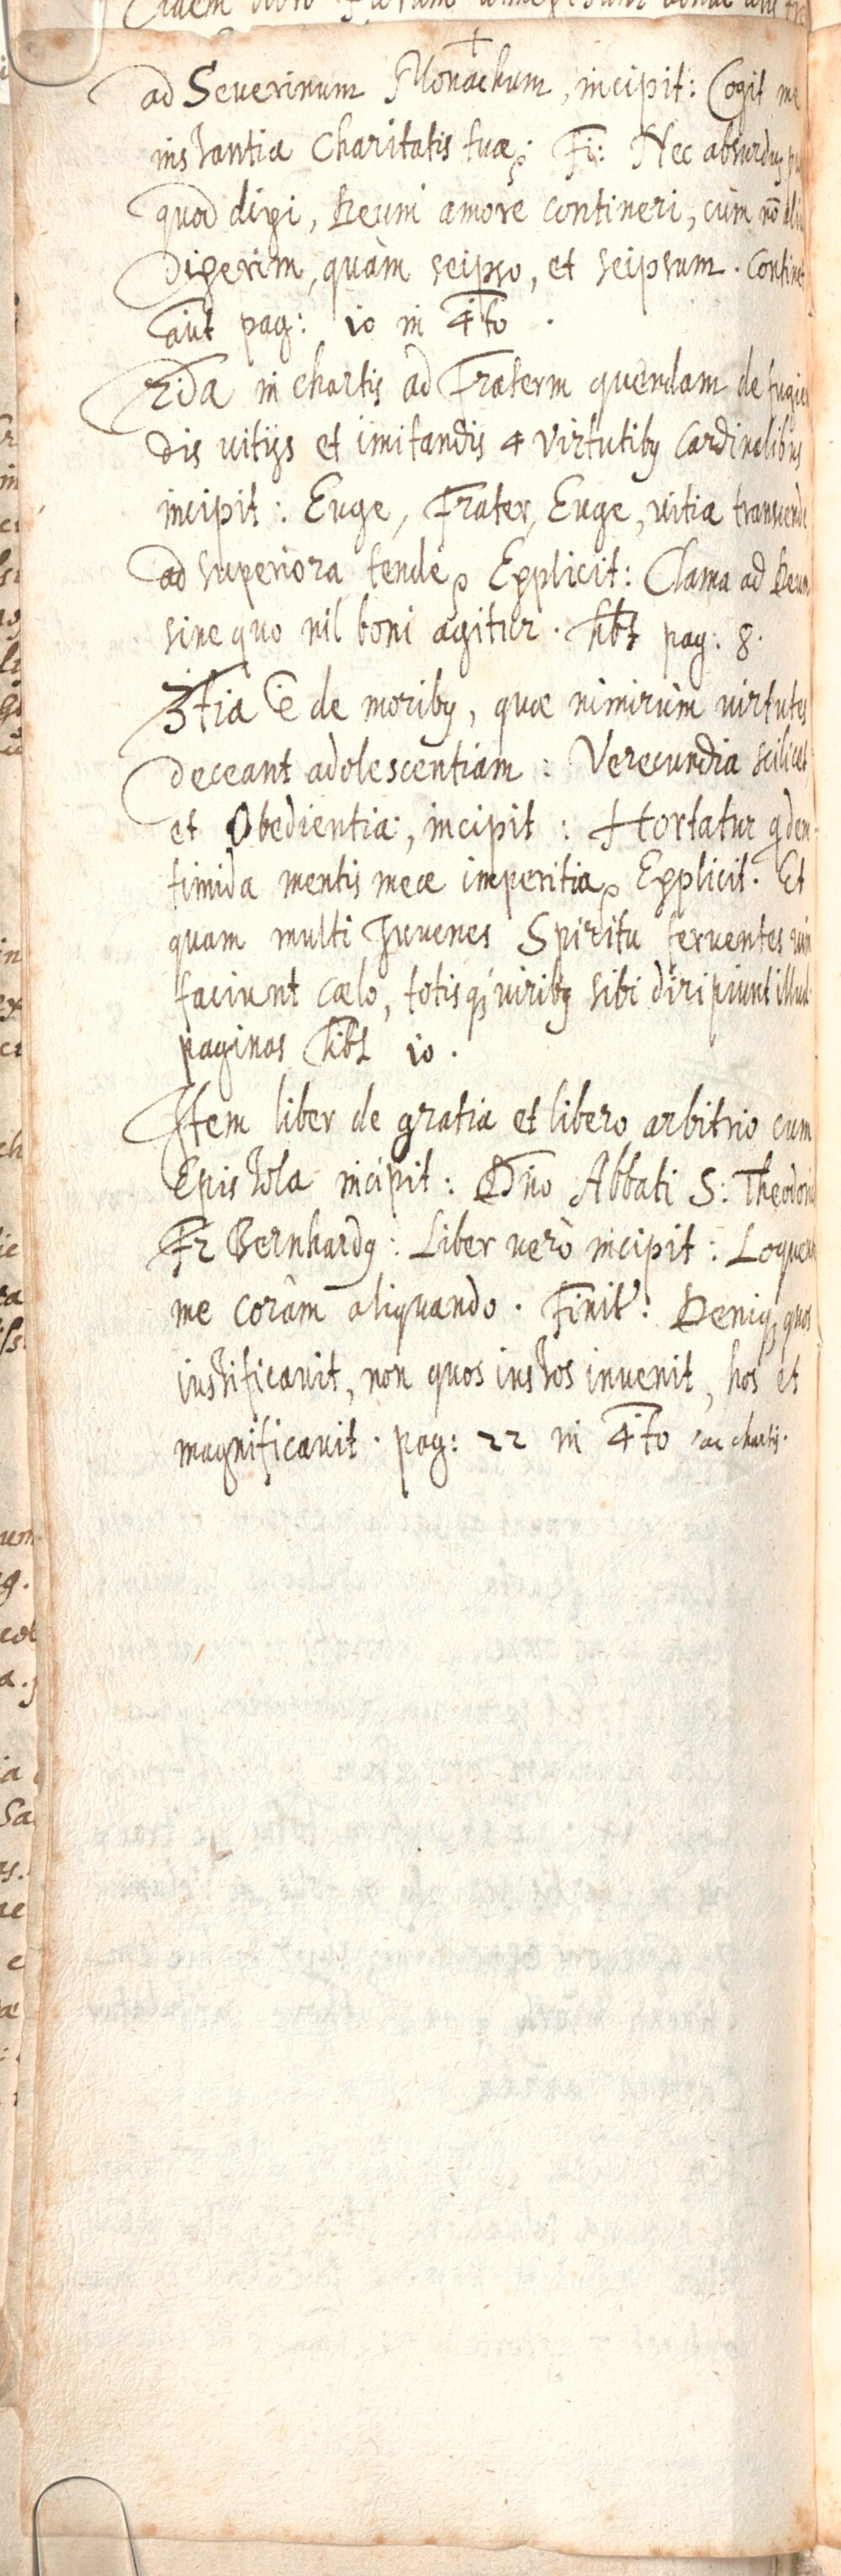 ad Seuerinum Monachum, incipit: Cogit me
instantia Charitatis tuæ: Fi: Nec absurdū
quod dixi, Deum amore contineri, cùm nō
dixerim, quàm seipso, et seipsum. Continet
aūt pag: 10 in 4to.
2da in chartis ad Fraterm quendam de fugien
dis vitijs et imitandis 4 virtutibq Cardinalibus
incipit: Euge, Frater, Euge, vitia transcende
ad superiora tende Explicit: Clama ad Deum
sine quo nil boni agitur. hbt pag: 8.
3tia ē de moribq, quæ nimirùm virtutes
deceant adolescentiam: Verecundia scilicet,
et Obedientia, incipit: Hortatur qden
timida mentis meæ imperitia, Explicit. Et
quam multi Juuenes Spiritu feruentes uim
faciunt cælo, totisq; viribq sibi diripiunt illud
paginas hbt 10.
Item liber de gratia et libero arbitrio cum
Epistola incipit: Dño Abbati S: Theodorici
Fr Bernhardq: Liber verò incipit: Loquente
me coràm aliquando. Finit: Deniq; quos
iustificauit, non quos iustos inuenit, hos et
magnificauit. pag: 22 in 4to chartis.